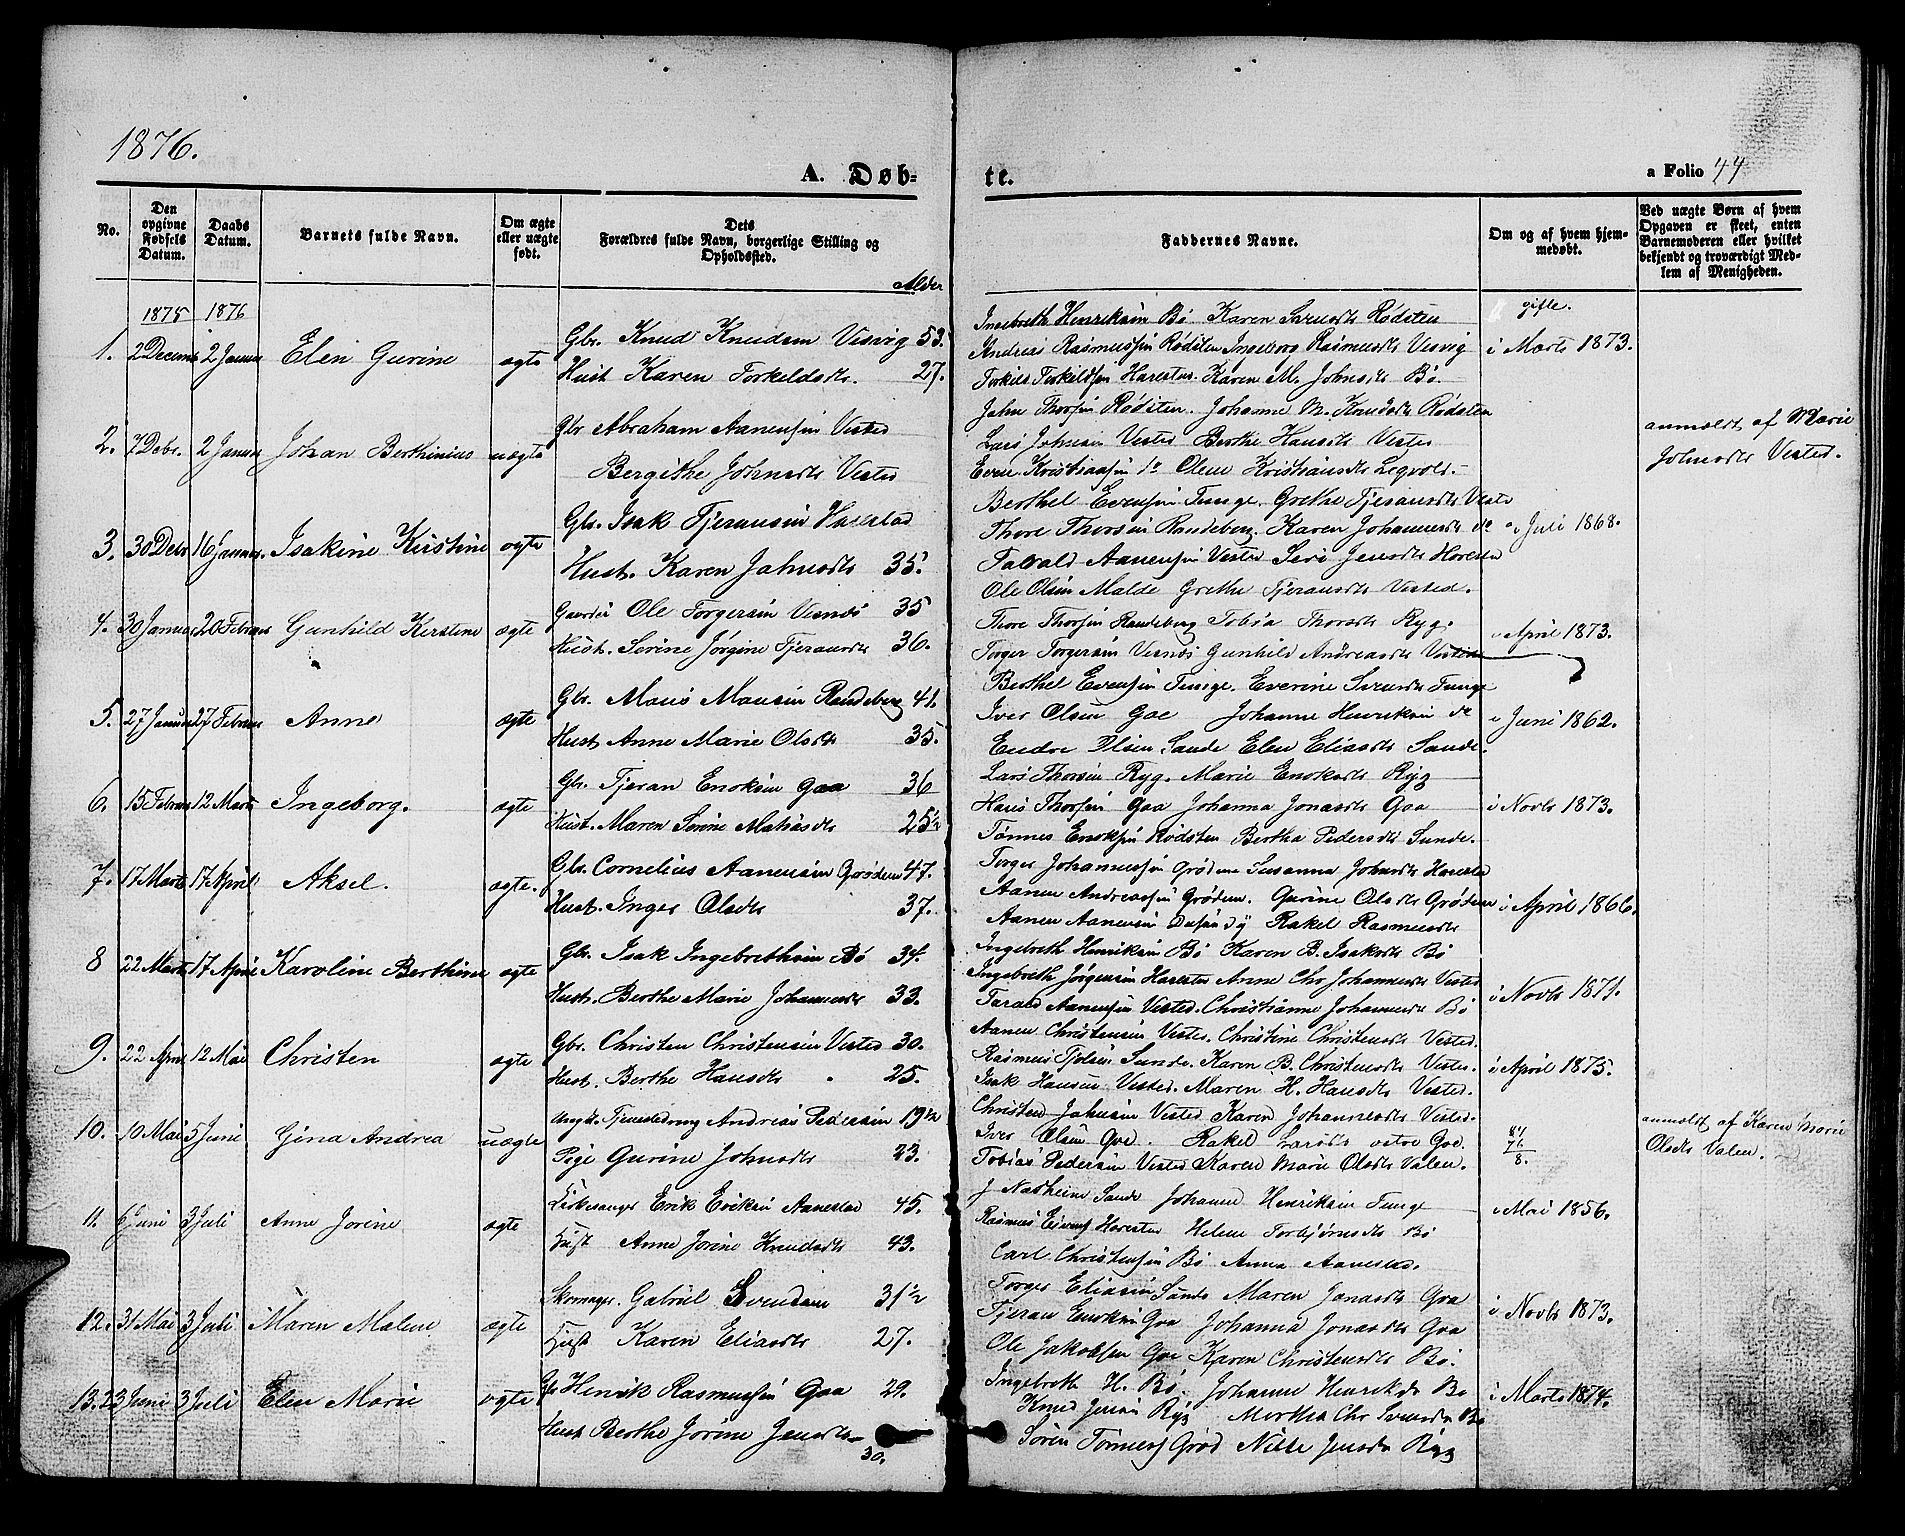 1876.
A. Døb-
te.
a Folio 44
No.
Den opgivne Fødsels Datum.
Daabs Datum.
Barnets fulde Navn.
Om ægte eller uægte født.
Dets Forældres fulde Navn, borgerlige Stilling og Opholdssted.
Alder
Faddernes Navne.
Om og af hvem hjemmedøbt.
Ved uægte Børn af hvem Opgaven er skeet, enten Barnemoderen eller hvilket bekjendt og troværdigt Medlem af Menigheden.
1875 1876
gifte.
1. 2 Decemb 2 Januar Elen Gurine ægte
Gbr. Knud Knudsen Visvig 53.
Hust Karen Torkeldsdtr. 27.
Ingebreth Henriksen Bø Karen Svensdtr Rødsten
Andreas Rasmussen Rødsten Ingeborg Rasmusdtr Visvig
Torkild Torkildsen Harestad. Karen M. Johnsdtr Bø.
i Marts 1873.
2. 7 Debr. 2 Januar Johan Berthinius uægte
Gbr Abraham Aanensen Visted
Bergithe Johnsdtr Visted
John Thorsen Rødsten. Johanne M. Knudsdtr Rødsten
Lars Johnsen Visted Berthe Hansdtr Visted
Even Kristiansen do Olene Kristiansdtr Leqvold.
anmeldt af Marie
Johnsdtr Visted.
3. 30 Debr 16 Januar. Isakine Kirstine ægte
Gbr. Isak Tjeransen Harestad
Hust. Karen Johnsdtr 35.
Berthel Evensen Tunge. Grethe Tjeransdtr Visted
Thore Thorsen Randeberg. Karen Johannesdtr do
Tarald Aanensen Visted Siri Jensdtr Harestad
i Juli 1868.
4. 30 Januar 20 Februar Gunhild Kirstine ægte
Gaardbr Ole Torgersen Visnæs 35
Hust. Serine Jørgine Tjeransdtr 36.
Ole Olsen Malde Grethe Tjeransdtr Visted.
Thore Thorsen Randeberg Tobia Thorsdtr Ryg.
Torger Torgersen Visnæs Gunhild Andreasdtr Visted
i April 1873.
5. 27 Januar 27 Februar Anne ægte
Gbr. Mons Monsen Randeberg 41.
Hust Anne Marie Olsdtr 35.
Berthel Evensen Tunge. Everine Svensdtr Tunge
Iver Olsen Goe Johanne Henriksen do
Endre Olsen Sande Elen Eliasdtr Sande.
i Juni 1862.
6. 15 Februar 12 Marts Ingeborg. ægte
Gbr. Tjeran Enoksen Goa 36
Hust. Maren Serine Matiasdtr 25½
Lars Thorsen Ryg. Marie Enoksdtr Ryg
Hans Thorsen Goa Johanna Jonasdtr Goa
Tønnes Enoksen Rødsten Bertha Pedersdtr Sunde.
i Novbr 1873.
7. 17 Marts 17 April Aksel. ægte.
Gbr. Cornelius Aanensen Grødem 47.
Hust. Inger Olsdtr 37.
Torger Johannessen Grødem Susanna Johnsdtr Harestad
Aanen Andreassen Grødem. Gurine Olsdtr Grødem
Aanen Aanensen Dusavig Rakel Rasmusdtr
i April 1866.
8 22 Marts 17 April Karoline Berthine ægte
Gbr. Isak Ingebrethsen Bø 34.
Hust. Berthe Marie Johannesdtr 33.
Ingebreth Henriksen Bø Karen B. Isaksdtr Bø
Ingebreth Jørgensen Harestad Anne Chr Johannesdtr Visted
Tarald Aanensen Visted. Christianne Johannesdtr Bø
i Novbr 1871.
9. 22 April 12 Mai Christen ægte
Gbr. Christen Christensen Visted 30.
Hust. Berthe Hansdtr 25.
Aanen Christensen Visted. Christine Christensdtr Visted.
Rasmus Tjølsen Sunde. Karen B. Christensdtr Visted.
Isak Hansen Visted. Maren H. Hansdtr Visted.
i April 1875.
10. 10 Mai 5 Juni Gina Andrea uægte
Ungk. Tjenestedreng Andreas Pedersen 19½
Pige Gurine Johnsdtr 23.
Christen Johnsen Visted Karen Johannesdtr Visted.
Iver Olsen Goe. Rakel Larsdtr østre Goe.
Tobias Pedersen Visted Karen Marie Olsdtr Valen.
anmeldt af Karen Marie
Olsdtr Valen.
11. 6 Juni 3 Juli Anne Jorine ægte
Kirkesanger Erik Eriksen Aanestad 45.
Hust Anne Jorine Knudsdtr 43.
J Nordheim Sande Johanne Henriksen Tunge
Rasmus Eivins. Harestad Helene Torbjørnsdtr Bø
Carl Christensen Bø Anna Aanestad.
i Mai 1856.
12. 31 Mai 3 Juli Maren Malene ægte
Skomager. Gabriel Svendsen 31½
Hust Karen Eliasdtr 27.
Torger Eliasen Sunde Maren Jonasdtr Goa
Tjeran Enoksen Goa Johanna Jonasdtr Goa
Ole Jakobsen Goe Karen Christensdtr Bø.
i Novbr 1873.
13. 23 Juni 3 Juli Elen Marie ægte
Gbr Henrik Rasmussen Goa 29.
Hust Berthe Jorine Jensdtr
30.
Ingebreth H. Bø. Johanne Henriksdr Bø
Knud Jensen Ryg Martha Chr Svensdr Bø
Søren Tønnes. Grød Nille Jensdr Ryg
i Marts 1874.